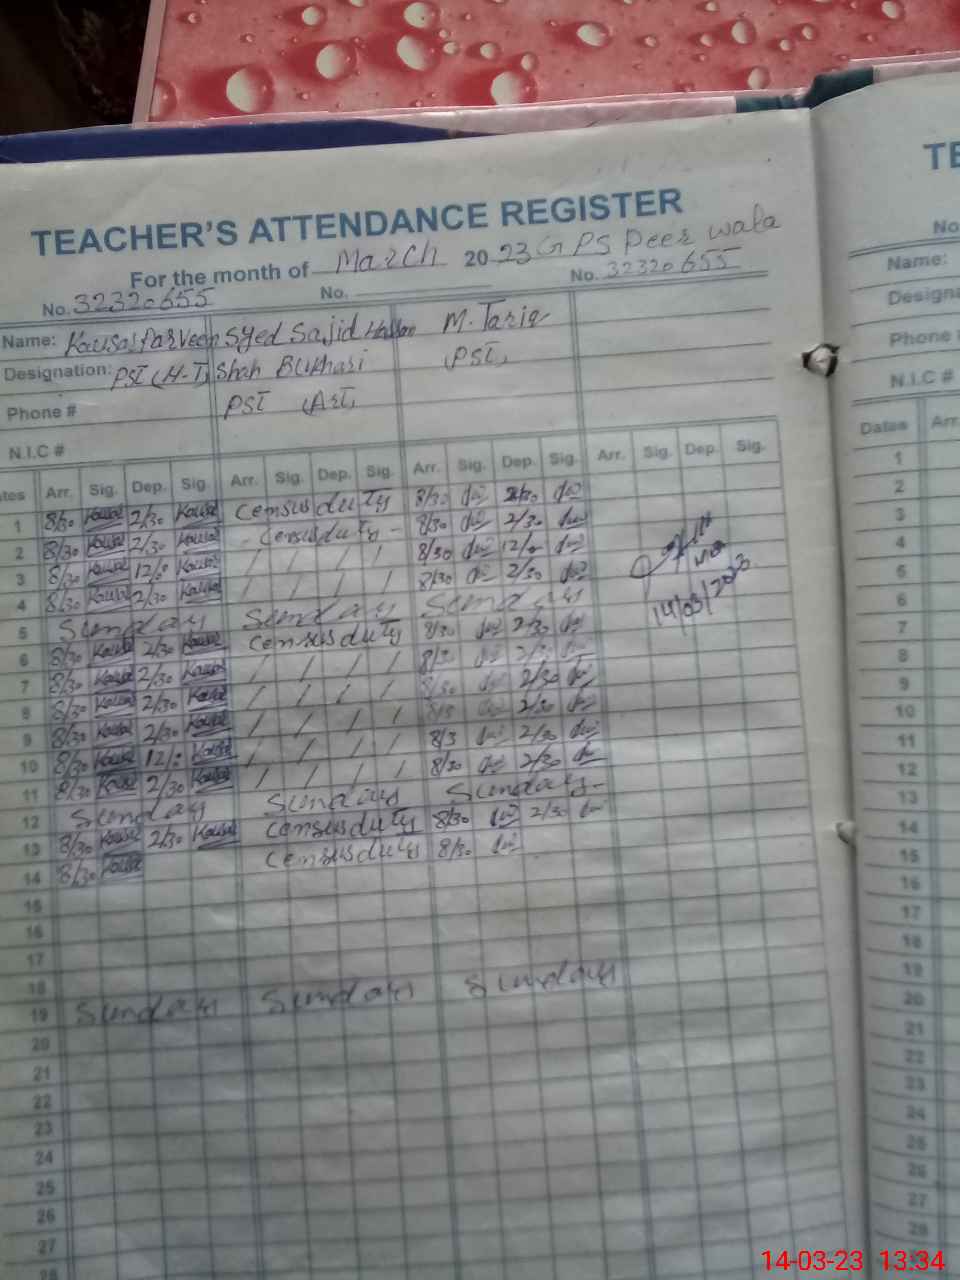 TEACHER'S ATTENDANCE REGISTER
For the month of March 2023 GPS Peer wala
No. 32320655 No. No. 32320655
Name: Kausar Parveen Syed Sajid Hassan M. Tariq
Designation: PST (H-T) Shah Bukhari (PST)
Phone # PST (AST)
N.I.C #
Arr. Sig. Dep. Sig. Arr. Sig. Dep. Sig. Arr. Sig. Dep. Sig. Arr. Sig. Dep. Sig.
1 8/30 Kausar 2/30 Kausar Census duty 8/30 2/30
2 8/30 Kausar 2/30 Kausar Census duty - 8/30 2/30
3 8/30 Kausar 12/0 Kausar / / / / 8/30 12/0
4 8/30 Kausar 2/30 Kausar / / / / 8/30 2/30
5 Sunday Sunday Sunday
6 8/30 Kausar 2/30 Kausar Census duty 8/30 2/30
7 8/30 Kausar 2/30 Kausar / / / / 8/30 2/30
8 8/30 Kausar 2/30 Kausar / / / / 8/30 2/30
9 8/30 Kausar 2/30 Kausar / / / / 8/3 2/30
10 8/30 Kausar 12/: Kausar / / / / 8/3 2/30
11 8/30 Kausar 2/30 Kausar / / / / 8/30 2/30
12 Sunday Sunday Sunday-
13 8/30 Kausar 2/30 Kausar Census duty 8/30 2/30
14 8/30 Kausar Census duty 8/30
14/03/2023
15
16
17
18
19 Sunday Sunday Sunday
20
21
22
23
24
25
26
27
28
TE
No.
Name:
Designa
Phone #
N.I.C #
Dates Arr.
1
2
3
4
5
6
7
8
9
10
11
12
13
14
15
16
17
18
19
20
21
22
23
24
25
26
27
28
14-03-23 13:34